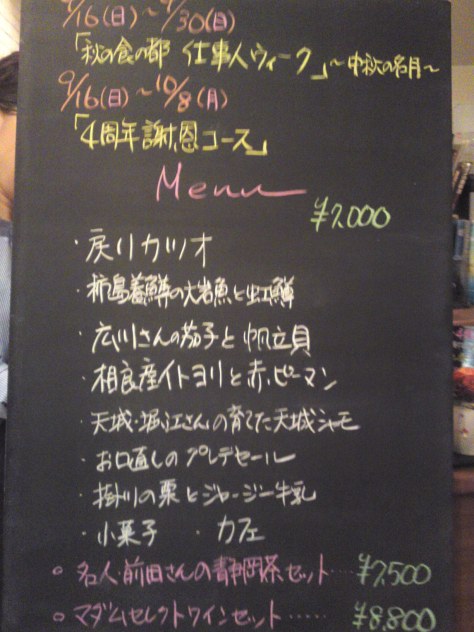 9/16(日)～9/30(日)
「秋の食の都 仕事人ウィーク」～中秋の名月～
9/16(日)～10/8(月)
「4周年謝恩コース」
Menu
¥7,000
・戻りカツオ
・柿島養鱒の大岩魚と虹鱒
・広川さんの茄子と帆立貝
・相良産イトヨリと赤ピーマン
・天城・堀江さんの育てた天城シャモ
・お口直しのプレデセール
・掛川の栗とジャージー牛乳
・小菓子 ・カフェ
○ 名人・前田さんの静岡茶セット… ¥7,500
○ マダムセレクトワインセット…… ¥8,800